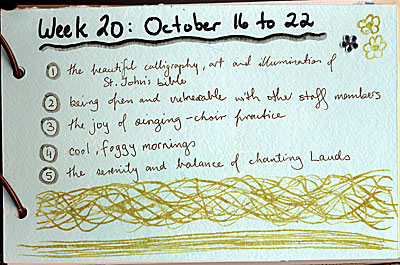 Week 20: October 16 to 22
1 the beautiful calligraphy, art and illumination of
St. John's bible
2 being open and vulnerable with other staff members
3 the joy of singing - choir practice
4 cool, foggy mornings
5 the serenity and balance of chanting Lauds